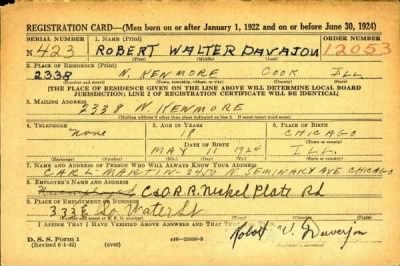 REGISTRATION CARD—(Men born on or after January 1, 1922 and on or before June 30, 1924)
SERIAL NUMBER 1. NAME (Print) ORDER NUMBER
N. 423 ROBERT WALTER DAVAJON 12053
(First) (Middle) (Last)
2. PLACE OF RESIDENCE (Print)
2338 N. KENMORE COOK ILL
(Number and street) (Town, township, village, or city) (County) (State)
[THE PLACE OF RESIDENCE GIVEN ON THE LINE ABOVE WILL DETERMINE LOCAL BOARD
JURISDICTION; LINE 2 OF REGISTRATION CERTIFICATE WILL BE IDENTICAL]
3. MAILING ADDRESS
2338 N. KENMORE
[Mailing address if other than place indicated on line 2. If same insert word same]
4. TELEPHONE 5. AGE IN YEARS 6. PLACE OF BIRTH
None 18 CHICAGO
DATE OF BIRTH (Town or county)
MAY 11 1924 ILL.
(Exchange) (Number) (Mo.) (Day) (Yr.) (State or country)
7. NAME AND ADDRESS OF PERSON WHO WILL ALWAYS KNOW YOUR ADDRESS
CARL MARTIN - 2450 N SEMINARY AVE CHICAGO
8. EMPLOYER'S NAME AND ADDRESS
C & O.R.R. Nickel Plate Rd
9. PLACE OF EMPLOYMENT OR BUSINESS
333 E So Water St
(Number and street or R. F. D. number) (Town) (County) (State)
I AFFIRM THAT I HAVE VERIFIED ABOVE ANSWERS AND THAT THEY ARE TRUE.
D. S. S. Form 1
(Revised 6-1-42) (over)
Robert W. Davajon